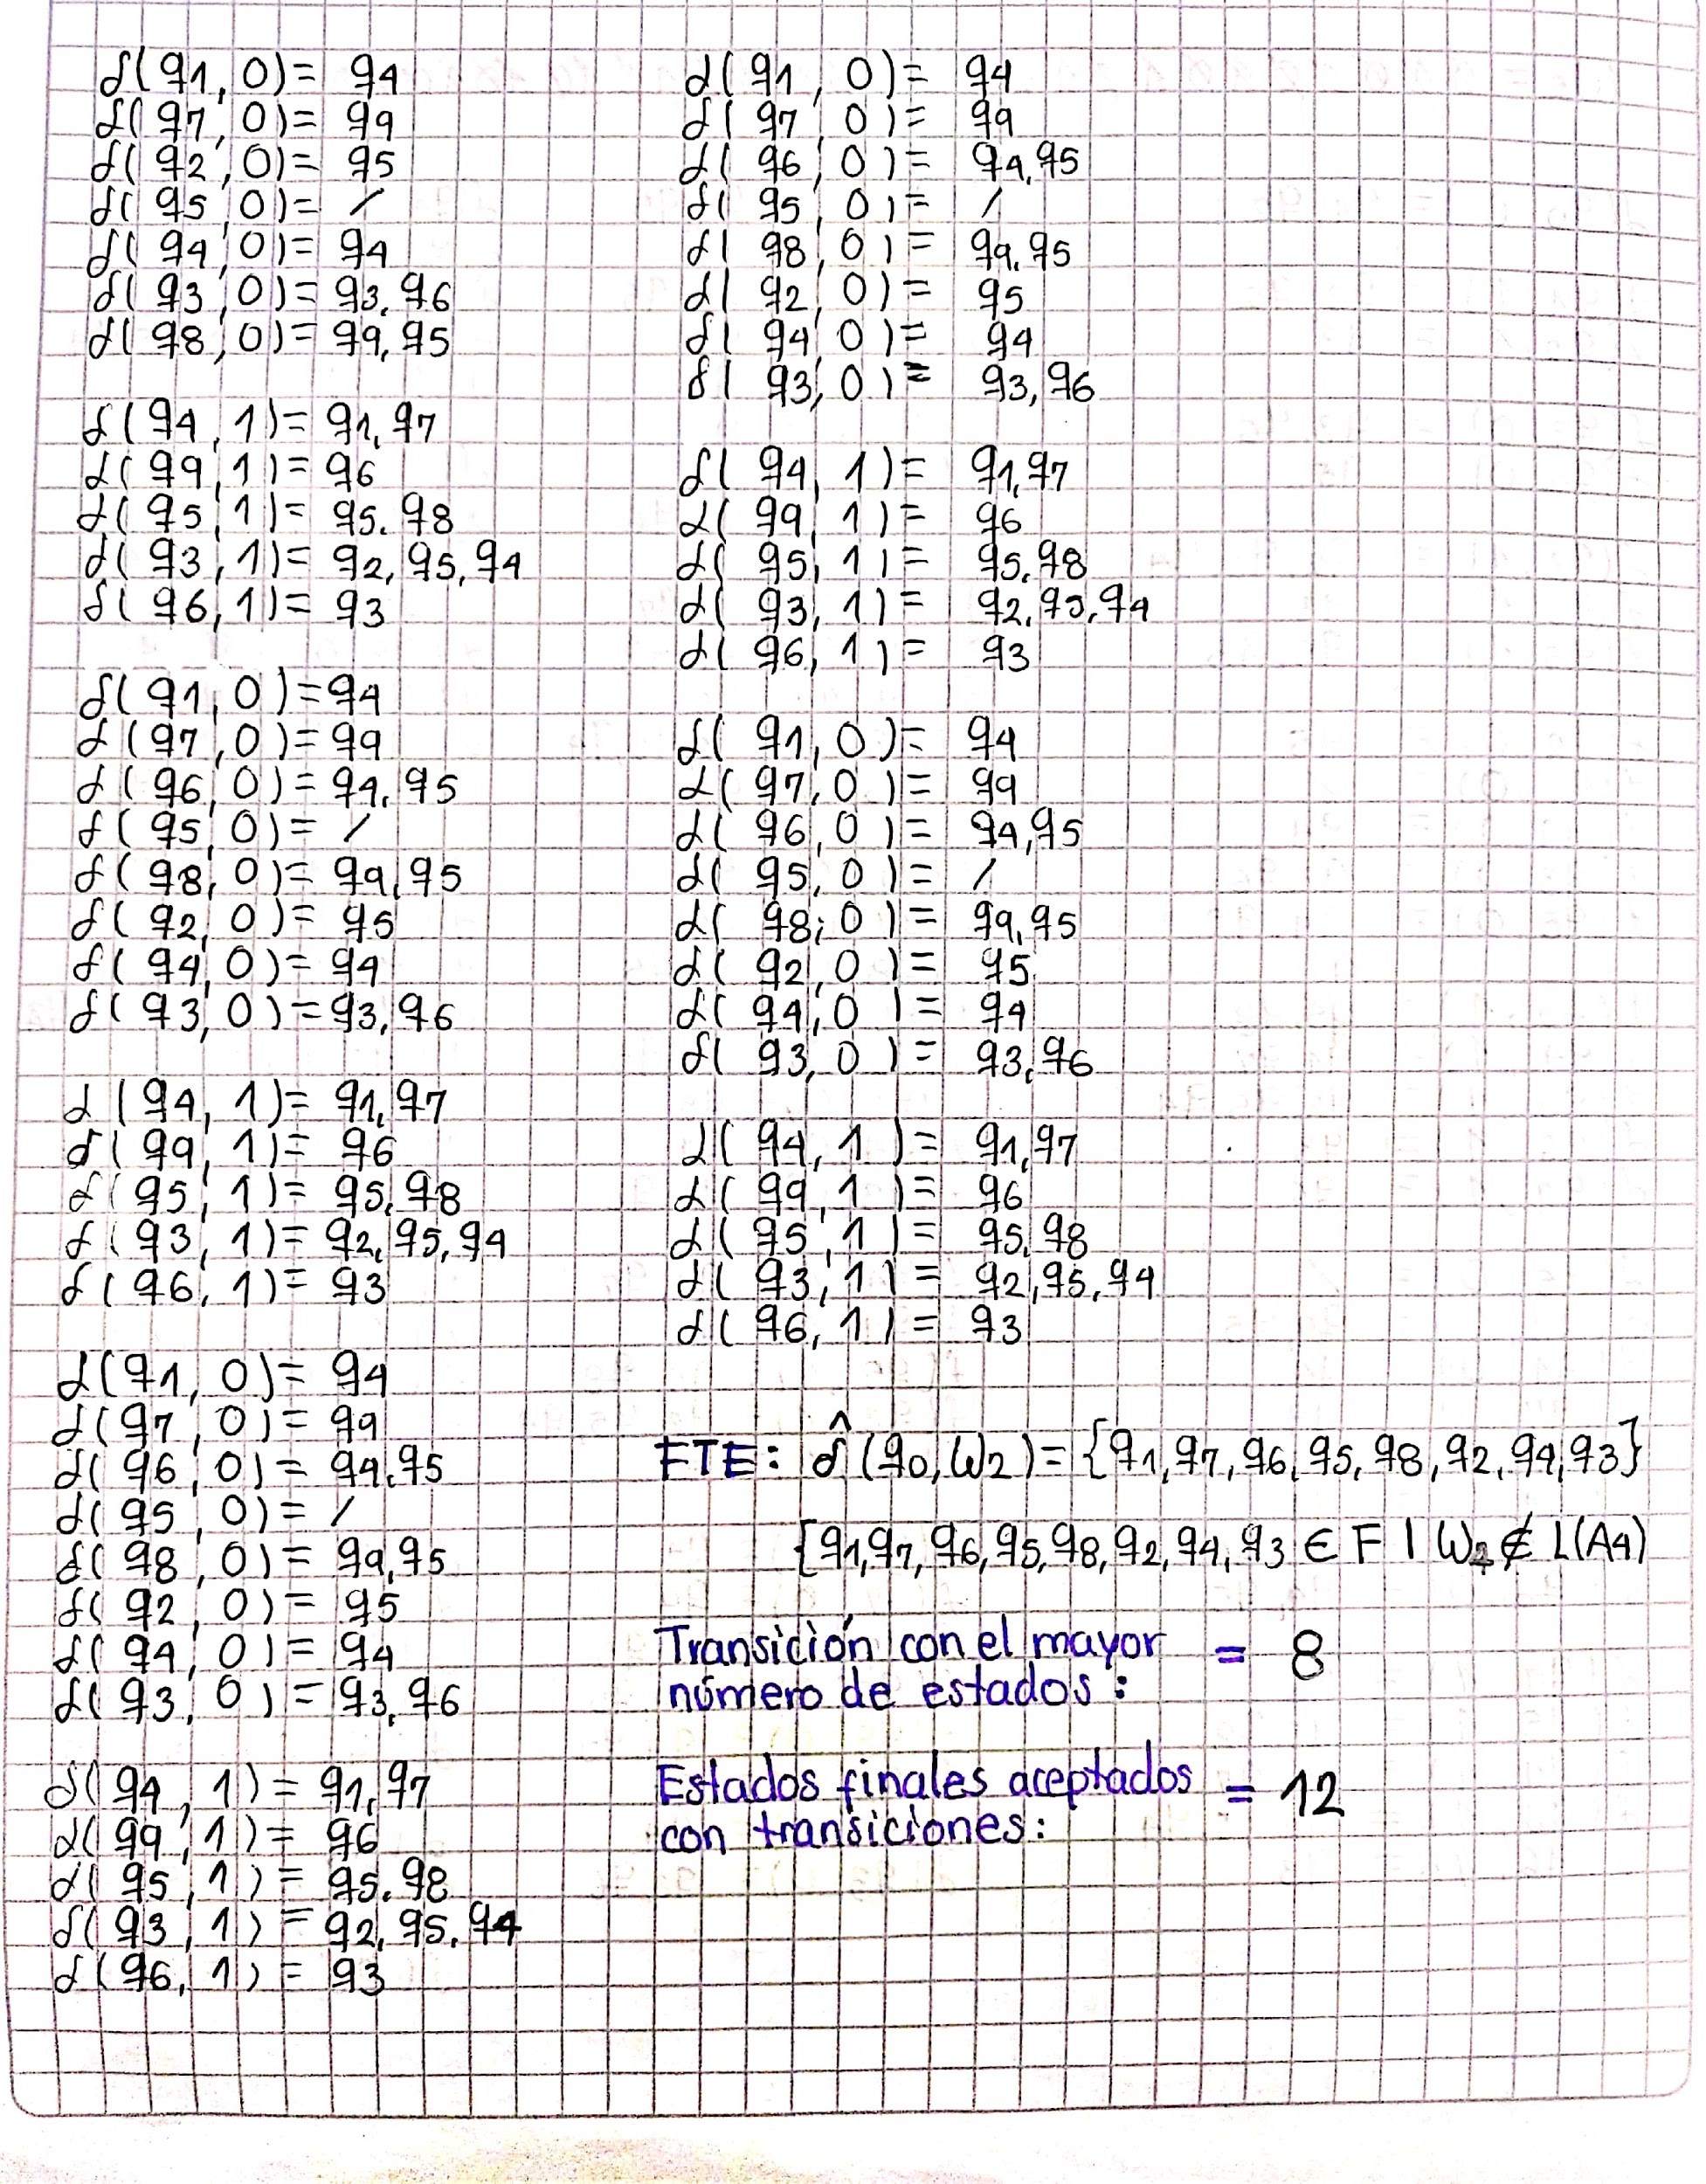 δ(q1, 0) = q4
δ(q7, 0) = q9
δ(q2, 0) = q5
δ(q5, 0) = /
δ(q4, 0) = q4
δ(q3, 0) = q3, q6
δ(q8, 0) = q9, q5
δ(q4, 1) = q1, q7
δ(q9, 1) = q6
δ(q5, 1) = q5, q8
δ(q3, 1) = q2, q5, q4
δ(q6, 1) = q3
δ(q1, 0) = q4
δ(q7, 0) = q9
δ(q6, 0) = q4, q5
δ(q5, 0) = /
δ(q8, 0) = q9, q5
δ(q2, 0) = q5
δ(q4, 0) = q4
δ(q3, 0) = q3, q6
δ(q4, 1) = q1, q7
δ(q9, 1) = q6
δ(q5, 1) = q5, q8
δ(q3, 1) = q2, q5, q4
δ(q6, 1) = q3
δ(q1, 0) = q4
δ(q7, 0) = q9
δ(q6, 0) = q4, q5
δ(q5, 0) = /
δ(q8, 0) = q9, q5
δ(q2, 0) = q5
δ(q4, 0) = q4
δ(q3, 0) = q3, q6
δ(q4, 1) = q1, q7
δ(q9, 1) = q6
δ(q5, 1) = q5, q8
δ(q3, 1) = q2, q5, q4
δ(q6, 1) = q3
δ(q1, 0) = q4
δ(q7, 0) = q9
δ(q6, 0) = q4, q5
δ(q5, 0) = /
δ(q8, 0) = q9, q5
δ(q2, 0) = q5
δ(q4, 0) = q4
δ(q3, 0) = q3, q6
δ(q4, 1) = q1, q7
δ(q9, 1) = q6
δ(q5, 1) = q5, q8
δ(q3, 1) = q2, q5, q4
δ(q6, 1) = q3
δ(q1, 0) = q4
δ(q7, 0) = q9
δ(q6, 0) = q4, q5
δ(q5, 0) = /
δ(q8, 0) = q9, q5
δ(q2, 0) = q5
δ(q4, 0) = q4
δ(q3, 0) = q3, q6
δ(q4, 1) = q1, q7
δ(q9, 1) = q6
δ(q5, 1) = q5, q8
δ(q3, 1) = q2, q5, q4
δ(q6, 1) = q3
FTE: δ̂ (q0, W2) = {q1, q7, q6, q5, q8, q2, q4, q3}
[q1, q7, q6, q5, q8, q2, q4, q3 ∈ F | W2 ∉ L(A4)
Transición con el mayor = 8
número de estados:
Estados finales aceptados = 12
con transiciones: